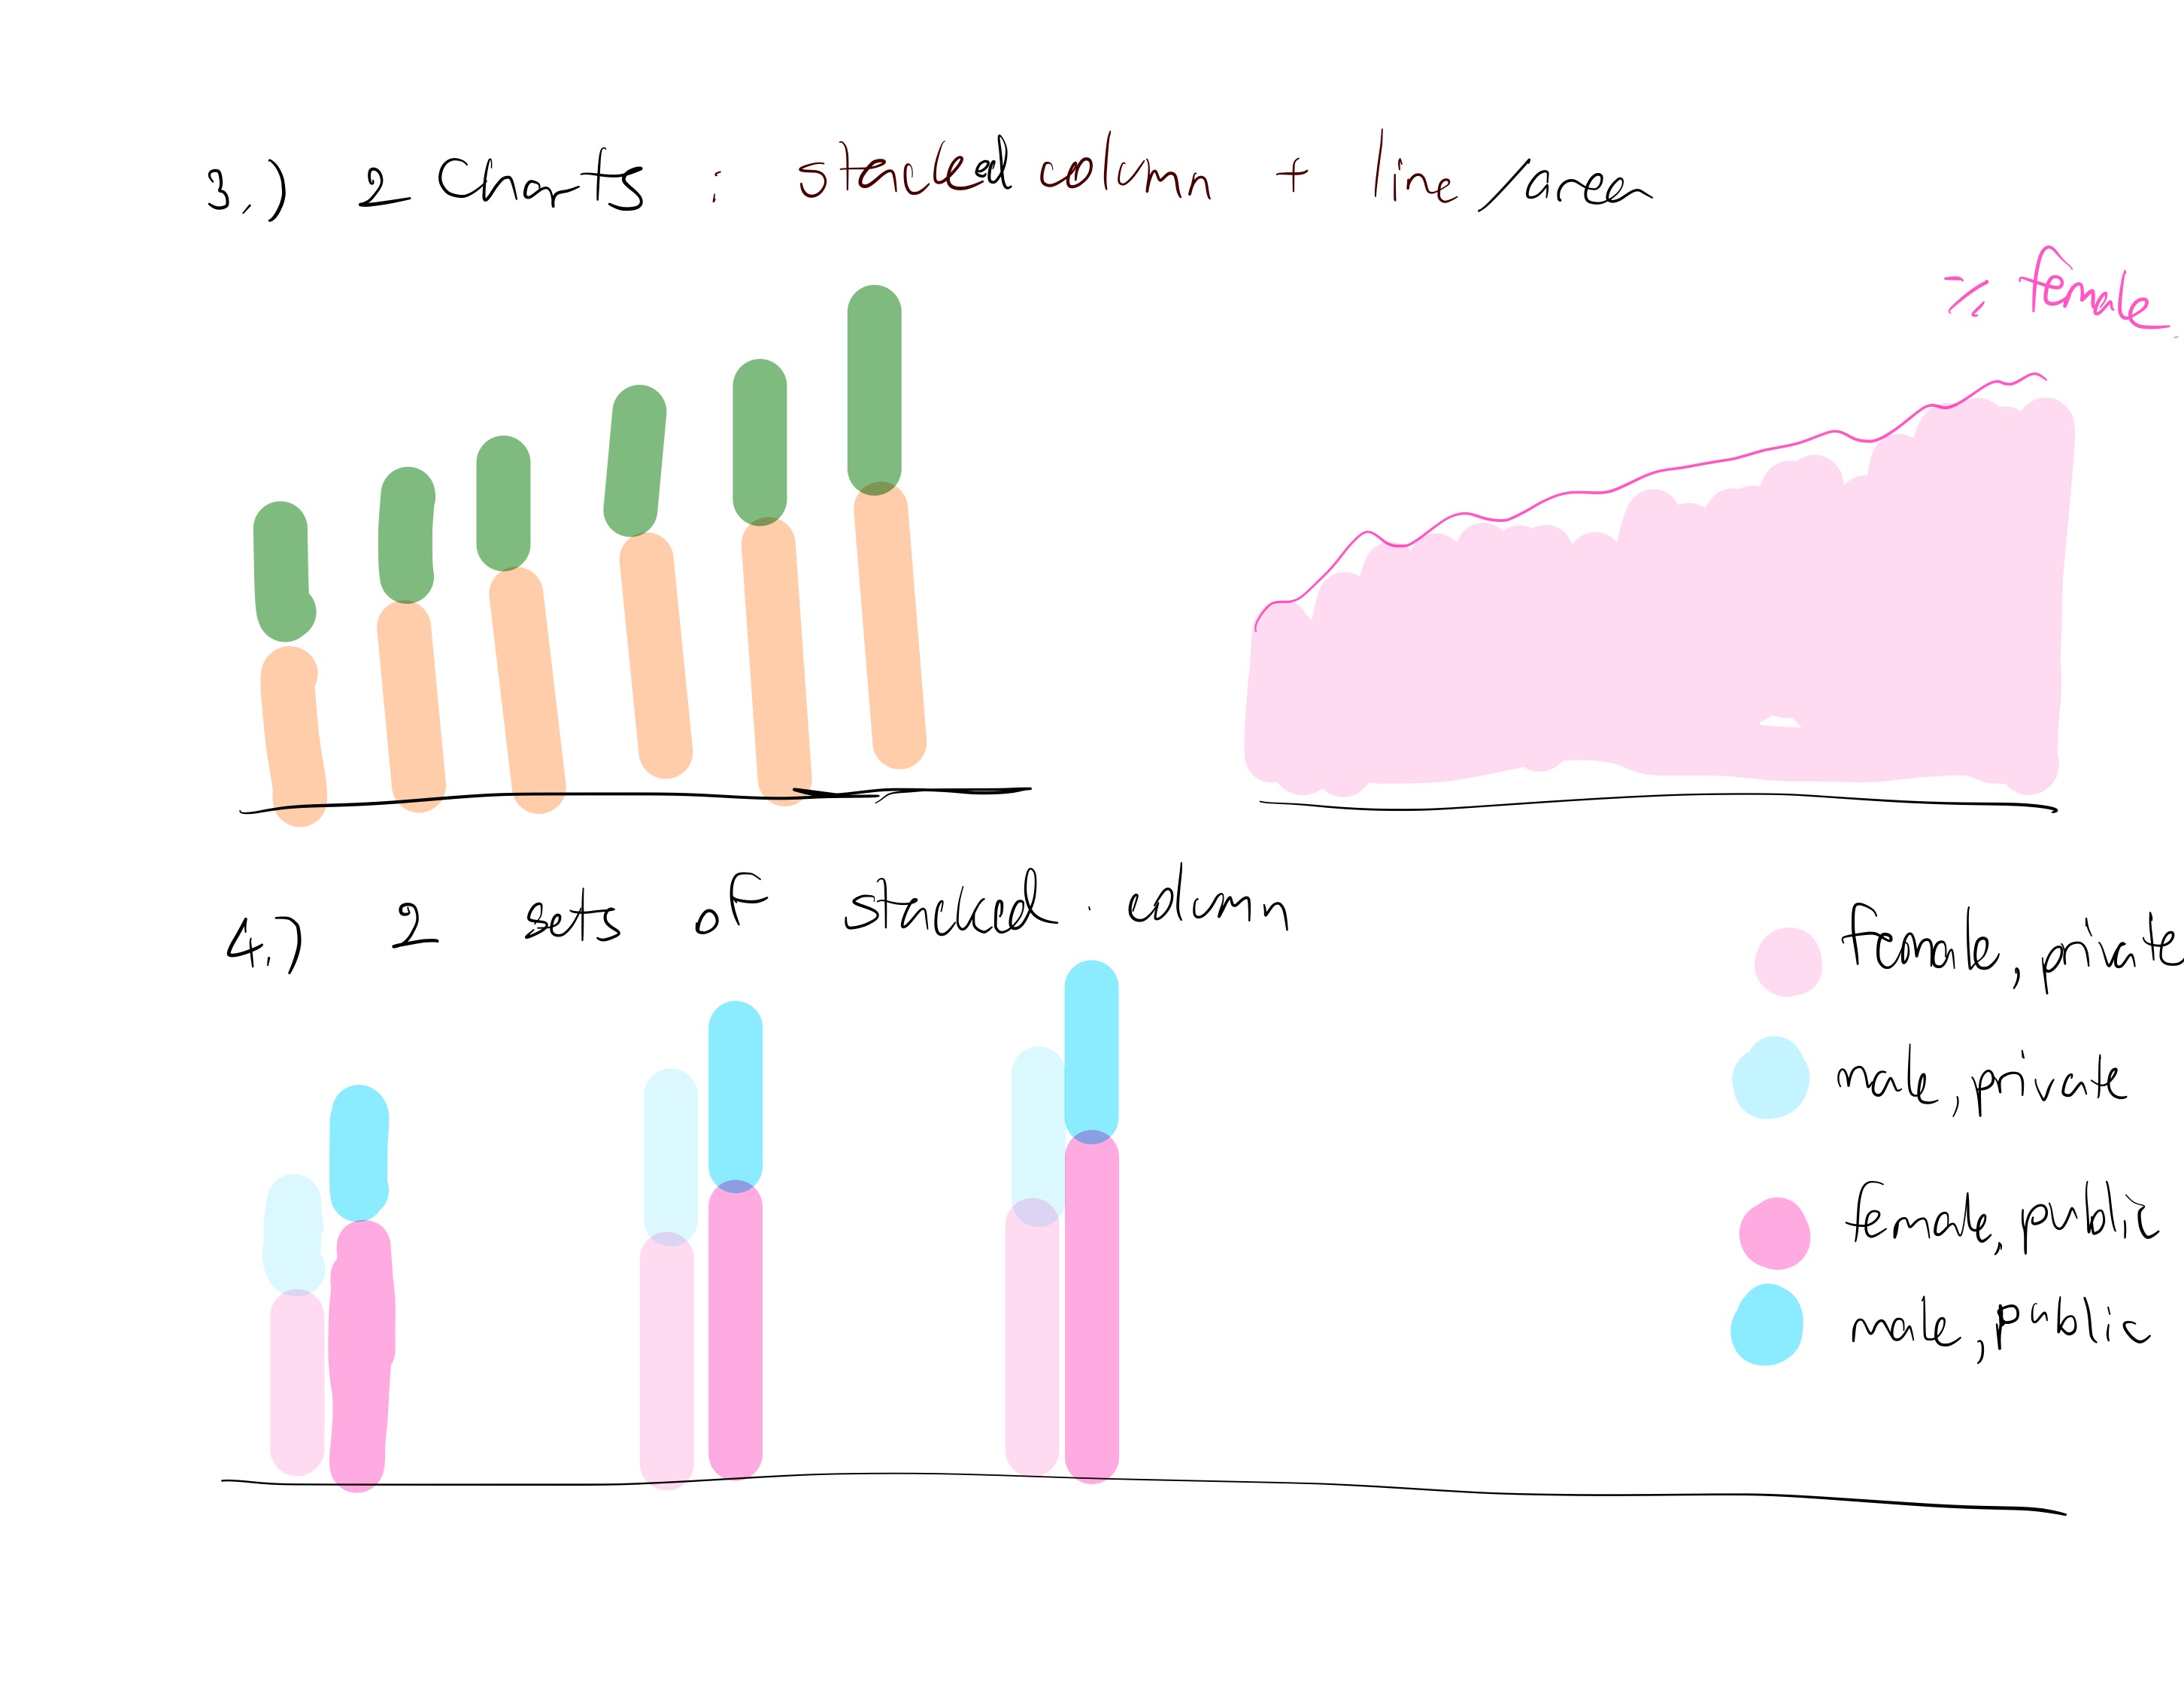 3.) 2 Charts : stacked column + line/area
% female
4.) 2 sets of stacked column
female, private
male, private
female, public
male, public